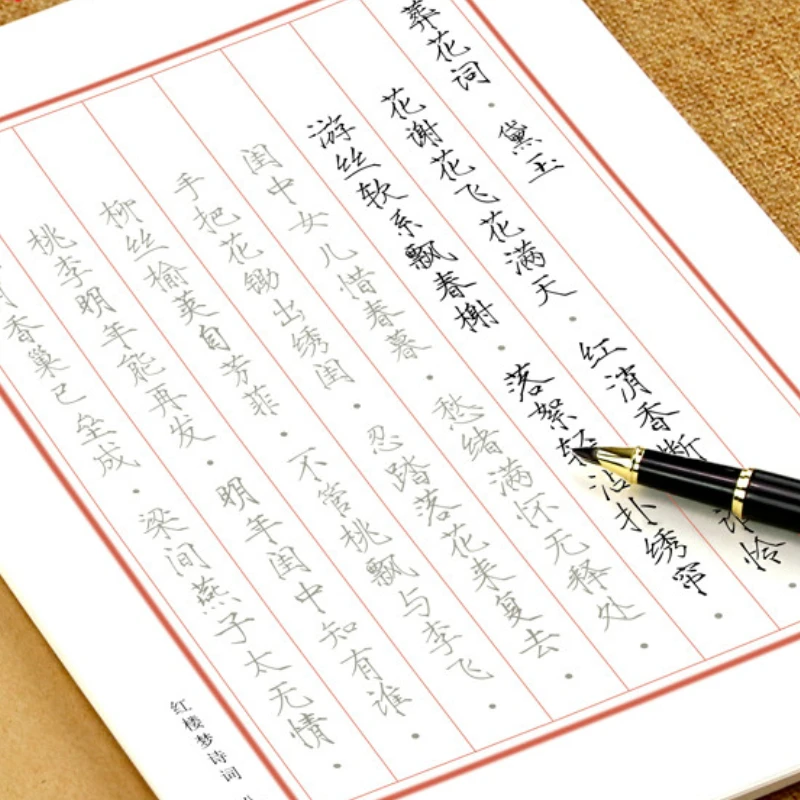 葬花词·黛玉
花谢花飞花满天·红消香断谁怜·
游丝软系飘春榭·落絮轻沾扑绣帘·
闺中女儿惜春暮·愁绪满怀无释处·
手把花锄出绣闺·忍踏落花来复去·
柳丝榆荚自芳菲·不管桃飘与李飞·
桃李明年能再发·明年闺中知有谁·
香巢已垒成·梁间燕子太无情·
红楼梦诗词